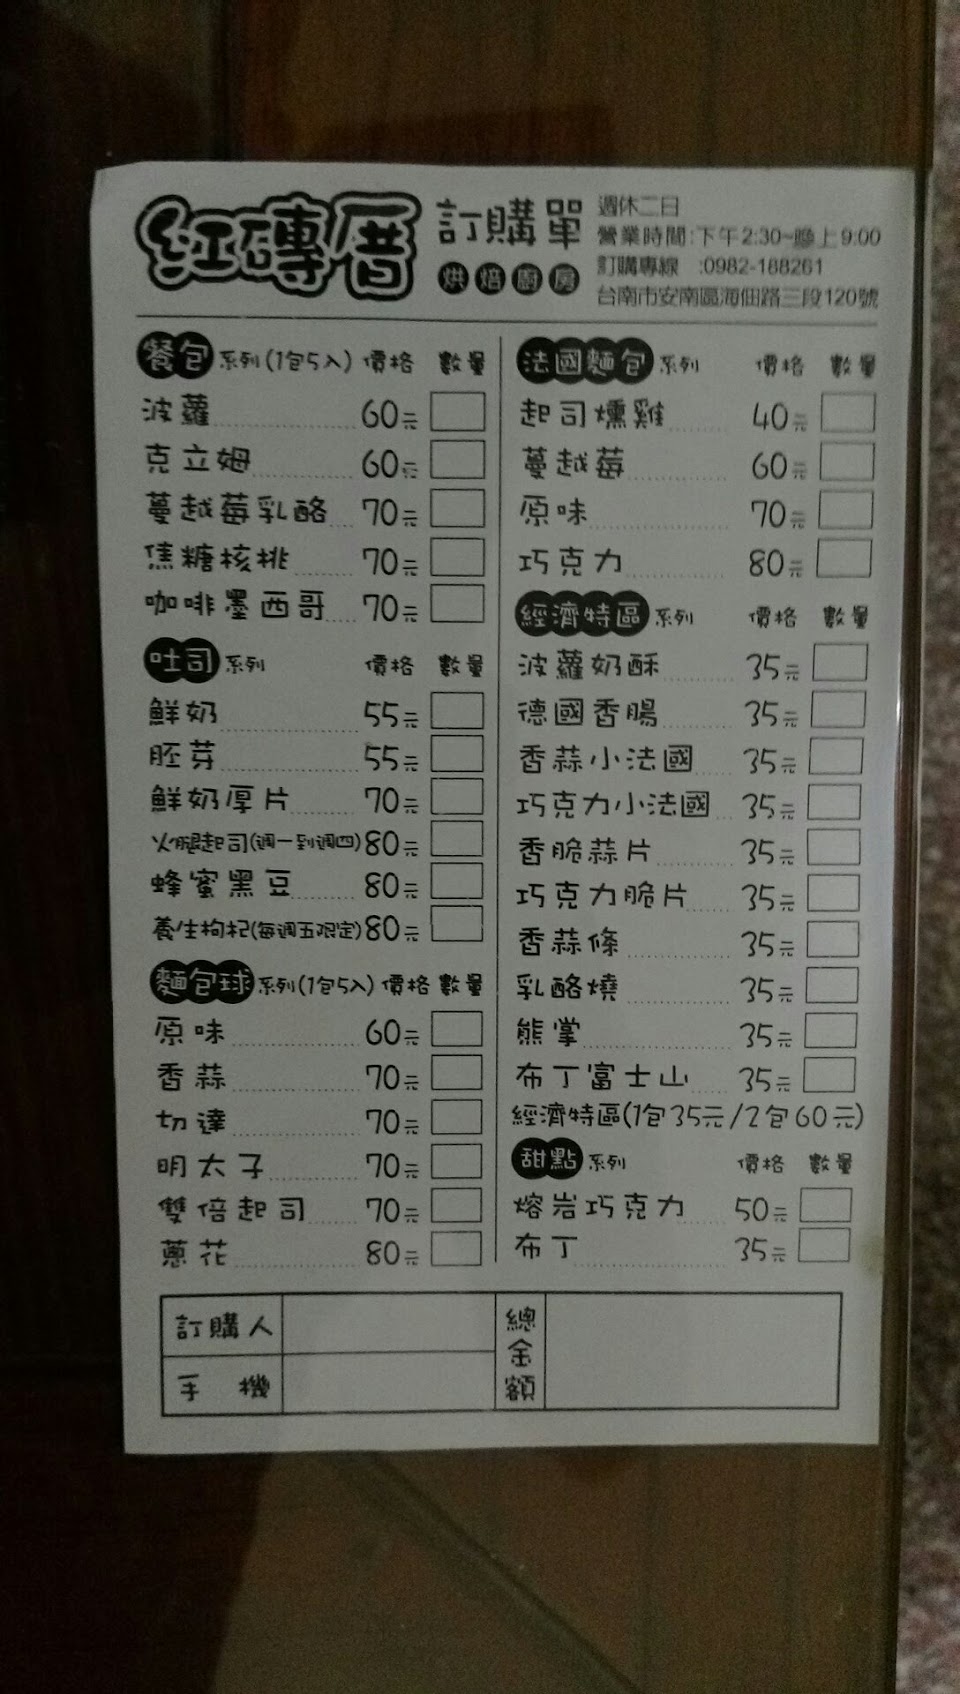 紅磚厝 訂購單
烘焙廚房
週休二日
營業時間:下午2:30~晚上9:00
訂購專線 :0982-188261
台南市安南區海佃路三段120號
餐包系列(1包5入) 價格 數量
波蘿 60元
克立姆 60元
蔓越莓乳酪 70元
焦糖核桃 70元
咖啡墨西哥 70元
吐司系列 價格 數量
鮮奶 55元
胚芽 55元
鮮奶厚片 70元
火腿起司(週一到週四) 80元
蜂蜜黑豆 80元
養生枸杞(每週五限定) 80元
麵包球系列(1包5入) 價格 數量
原味 60元
香蒜 70元
切達 70元
明太子 70元
雙倍起司 70元
蔥花 80元
法國麵包系列 價格 數量
起司燻雞 40元
蔓越莓 60元
原味 70元
巧克力 80元
經濟特區系列 價格 數量
波蘿奶酥 35元
德國香腸 35元
香蒜小法國 35元
巧克力小法國 35元
香脆蒜片 35元
巧克力脆片 35元
香蒜條 35元
乳酪燒 35元
熊掌 35元
布丁富士山 35元
經濟特區(1包35元/2包60元)
甜點系列 價格 數量
熔岩巧克力 50元
布丁 35元
訂購人
手機
總金額